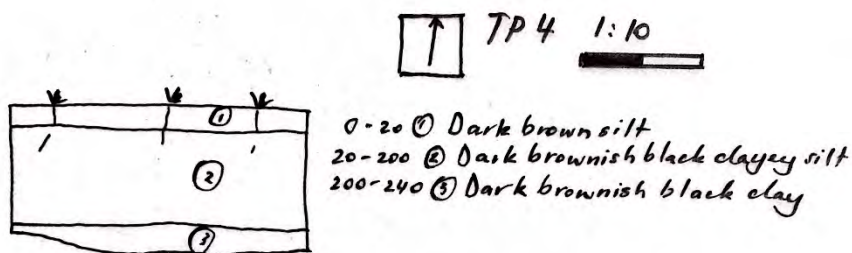 TP 4 1:10
0-20 ① Dark brown silt
20-200 ② Dark brownish black clayey silt
200-240 ③ Dark brownish black clay
①
②
③